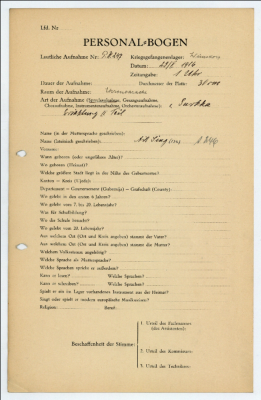 Lfd. Nr.
PERSONAL-BOGEN
Lautliche Aufnahme Nr.: PK 249 Kriegsgefangenenlager:
Datum:
Zeitangabe: 1 Uhr
Dauer der Aufnahme: Durchmesser der Platte:
Raum der Aufnahme:
Art der Aufnahme (Sprechaufnahme, Gesangsaufnahme,
Choraufnahme, Instrumentenaufnahme, Orchesteraufnahme):
Erzählung II Teil
Name (in der Muttersprache geschrieben):
Name (lateinisch geschrieben):
Vorname:
Wann geboren (oder ungefähres Alter)?
Wo geboren (Heimat)?
Welche größere Stadt liegt in der Nähe des Geburtsortes?
Kanton – Kreis (Ujedz):
Departement – Gouvernement (Gubernija) – Grafschaft (County):
Wo gelebt in den ersten 6 Jahren?
Wo gelebt vom 7. bis 20. Lebensjahr?
Was für Schulbildung?
Wo die Schule besucht?
Wo gelebt vom 20. Lebensjahr?
Aus welchem Ort (Ort und Kreis angeben) stammt der Vater?
Aus welchem Ort (Ort und Kreis angeben) stammt die Mutter?
Welchem Volksstamm angehörig?
Welche Sprache als Muttersprache?
Welche Sprachen spricht er außerdem?
Kann er lesen? Welche Sprachen?
Kann er schreiben? Welche Sprachen?
Spielt er ein im Lager vorhandenes Instrument aus der Heimat?
Singt oder spielt er modern europäische Musikweisen?
Religion: Beruf:
Beschaffenheit der Stimme:
1. Urteil des Fachmannes
(des Assistenten):
2. Urteil des Kommissars:
3. Urteil des Technikers: